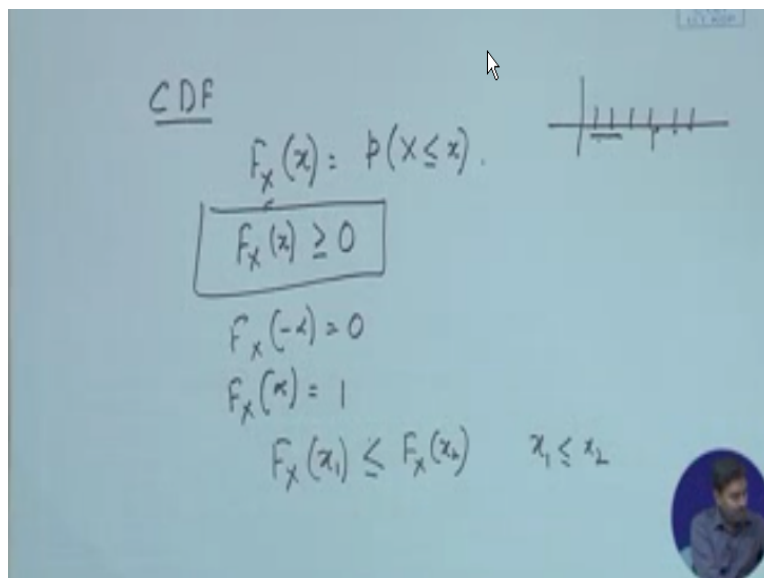 CDF
F_X(x) = p(X ≤ x).
F_X(x) ≥ 0
F_X(-∝) = 0
F_X(∝) = 1
F_X(x₁) ≤ F_X(x₂) x₁ ≤ x₂